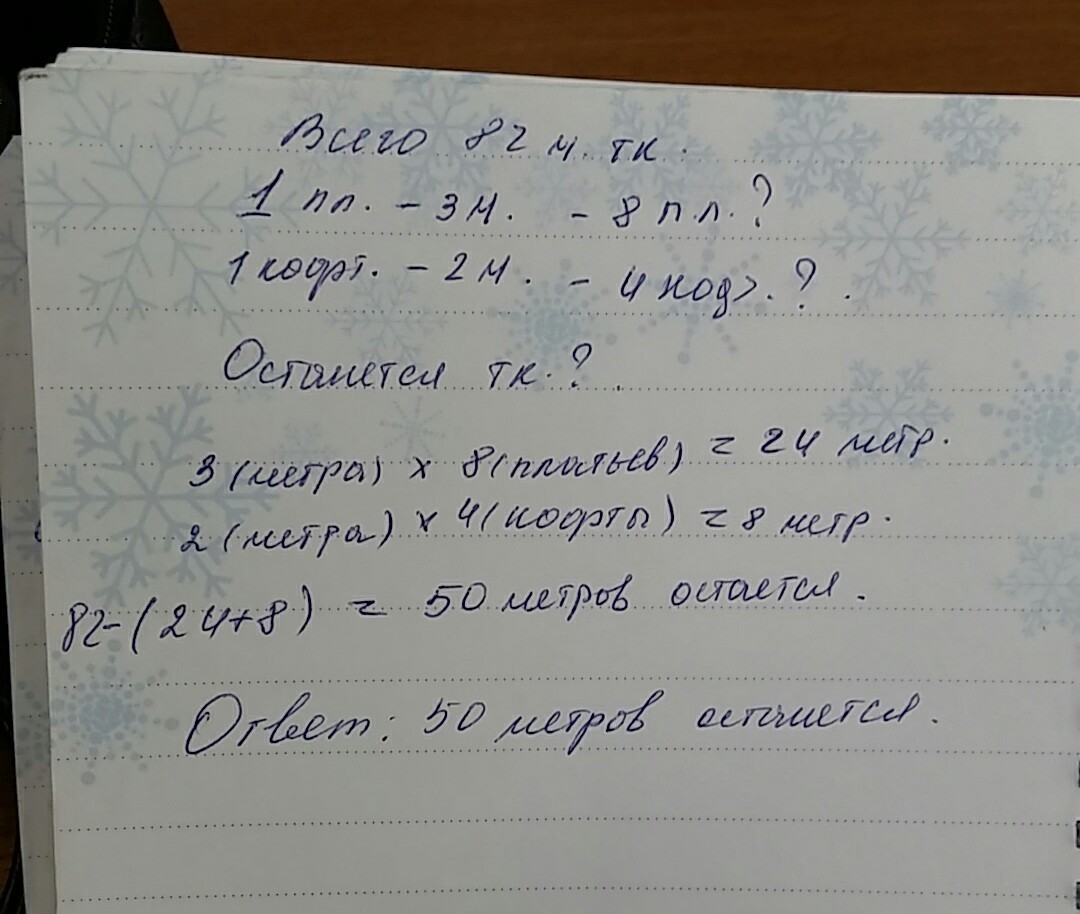 Всего 82 м. тк.
1 пл. - 3 м. - 8 пл.?
1 кофт. - 2 м. - 4 коф>.?.
Останется тк.?.
3 (метра) x 8 (платьев) = 24 метр.
2 (метра) x 4 (кофты) = 8 метр.
82-(24+8) = 50 метров остается.
Ответ: 50 метров останется.